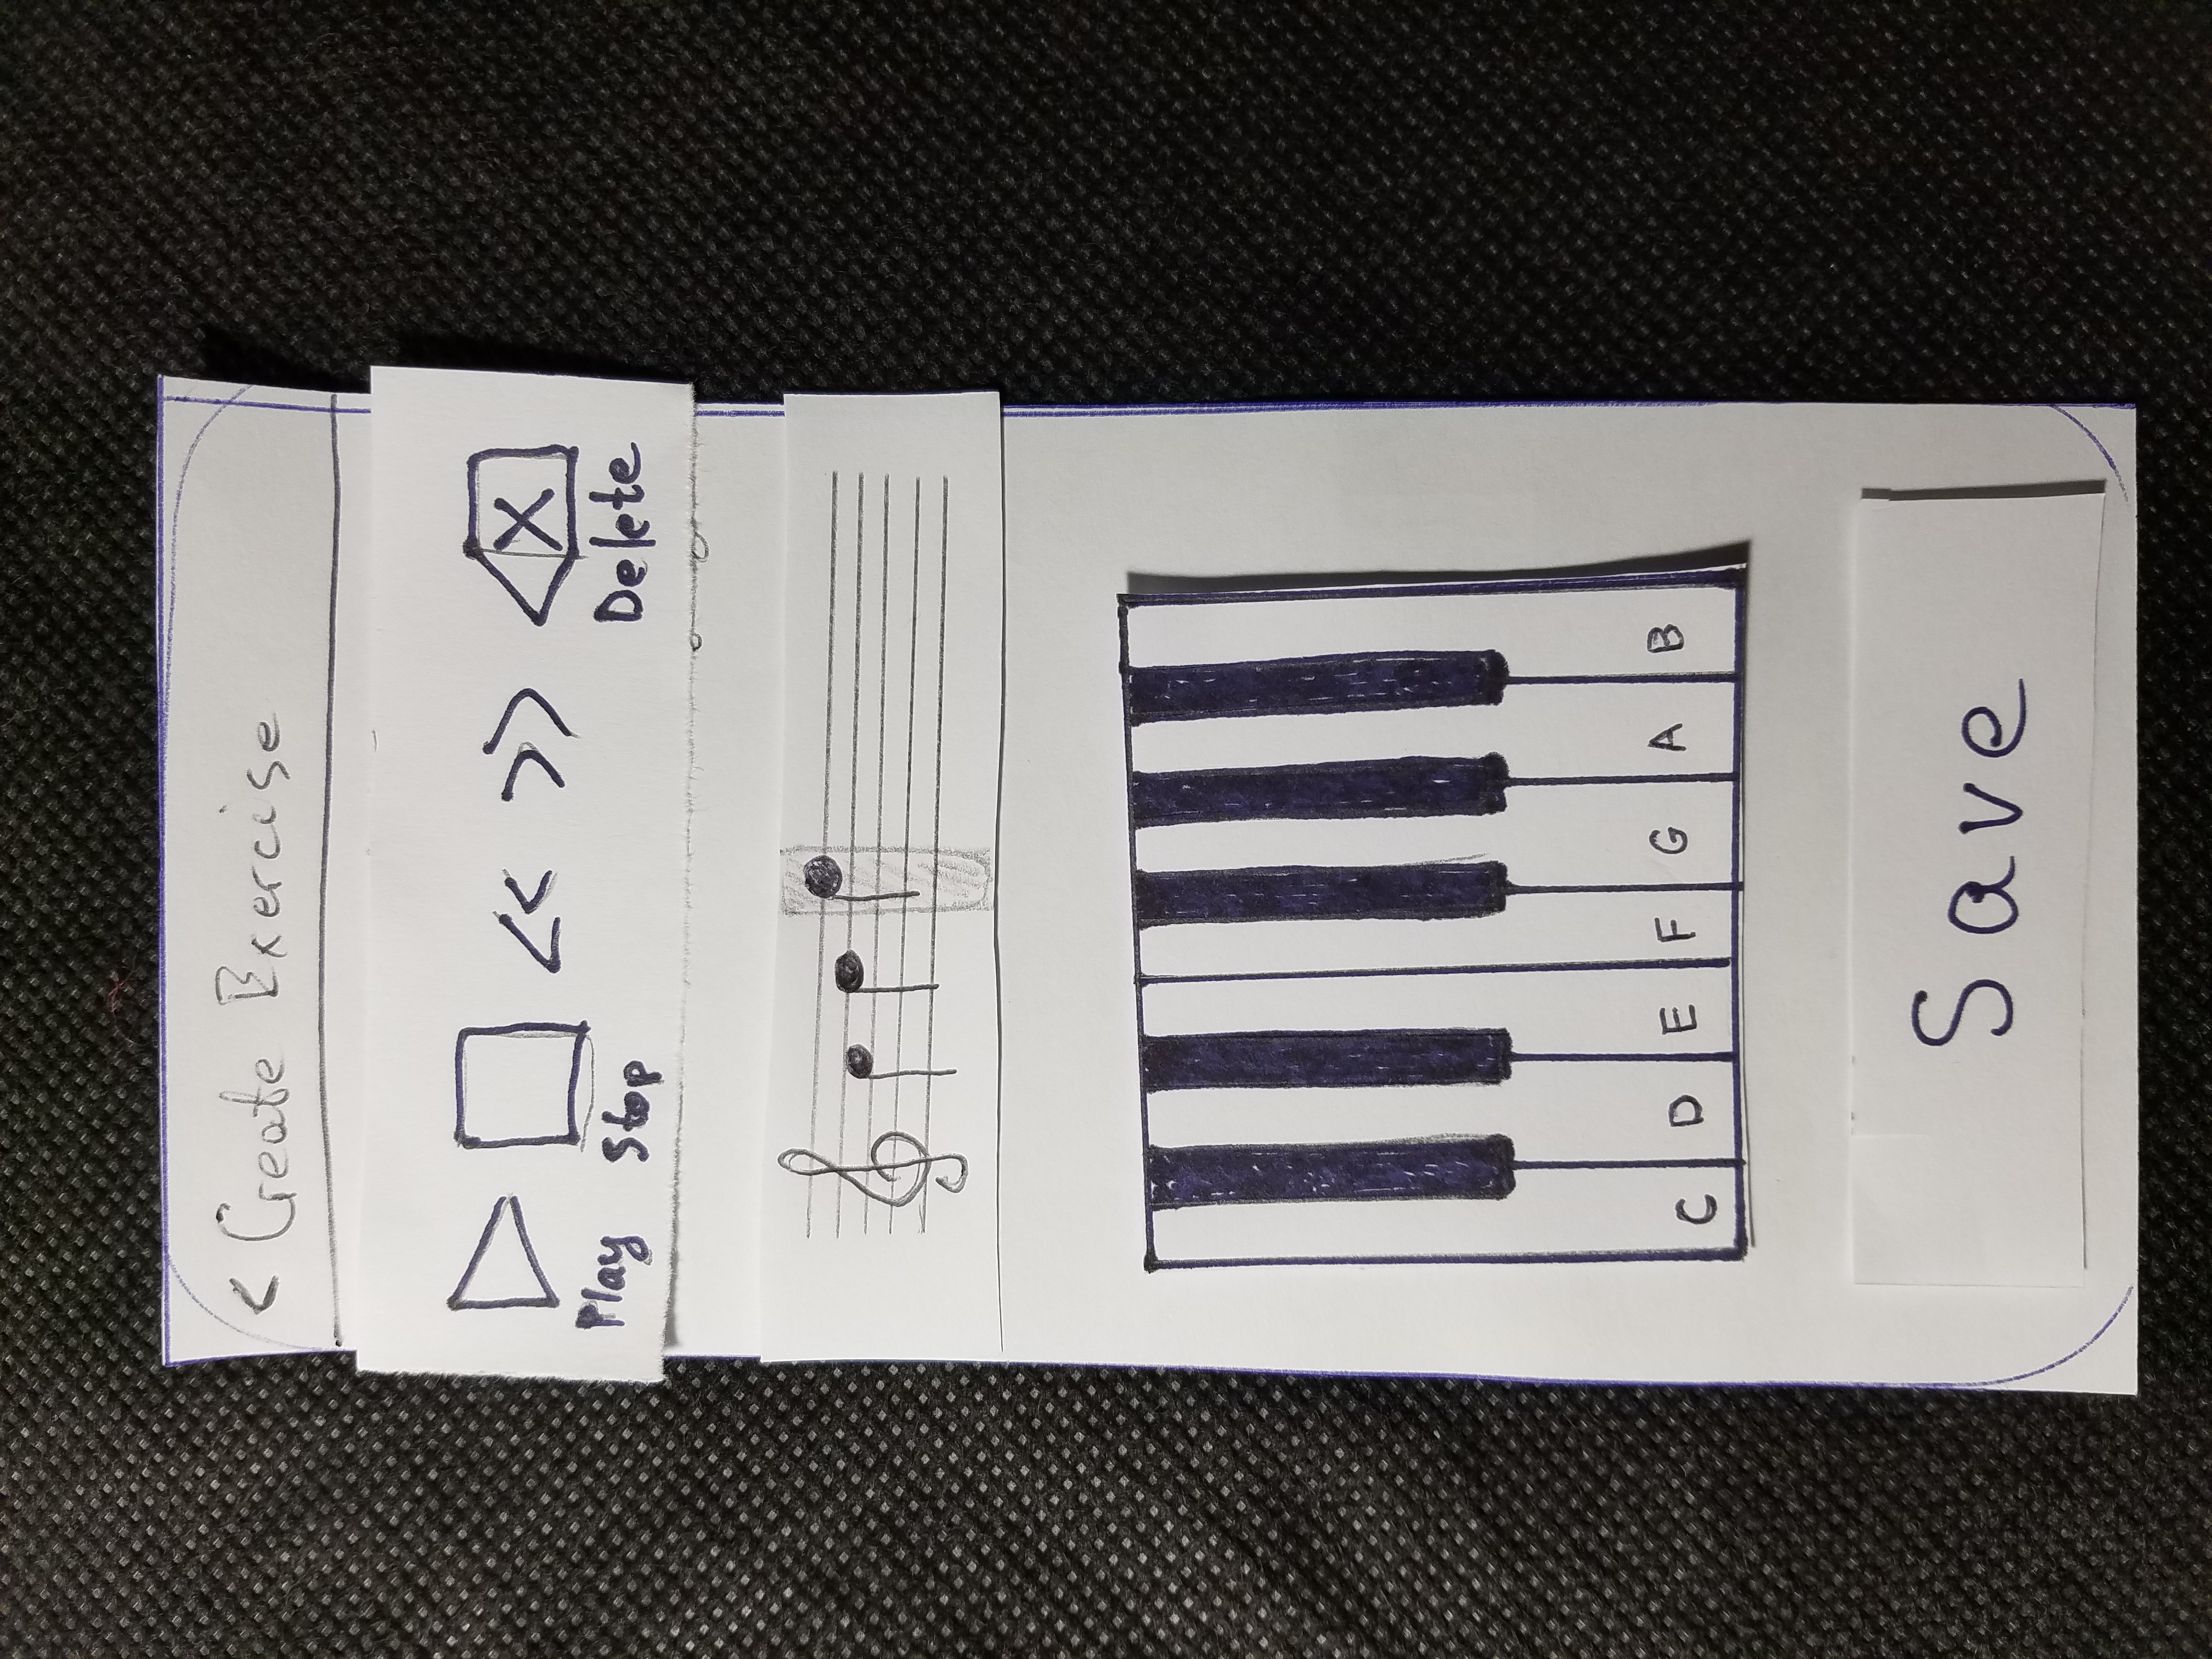 < Create Exercise
<< >> X
Play Stop Delete
C D E F G A B
Save